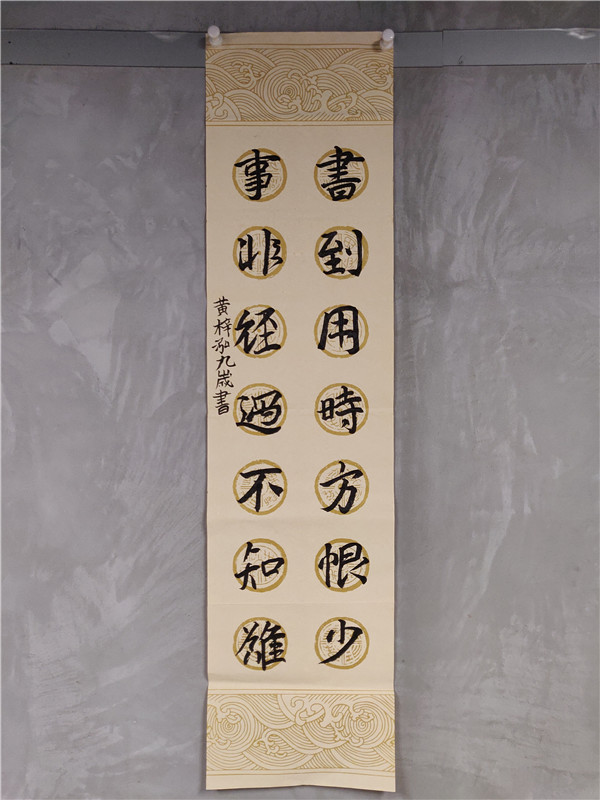 書到用時方恨少
事非经過不知難
黄梓泓九歲書